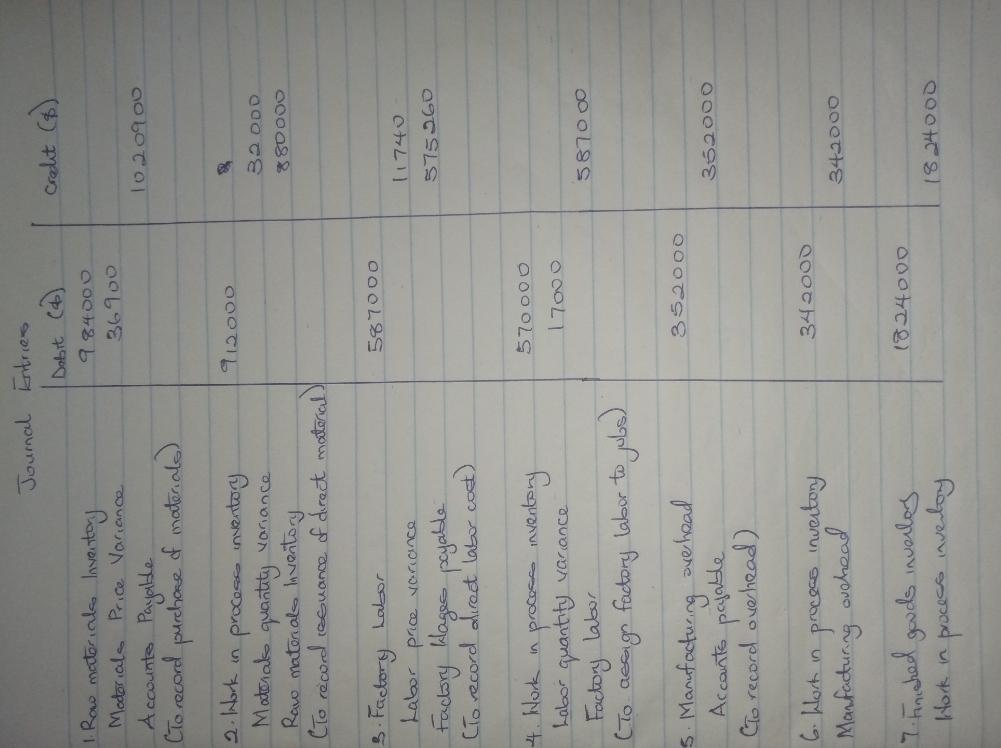 Journal Entries
Debit ($) Credit ($)
1. Raw materials Inventory 984000
Materials Price Variance 36900
Accounts Payable 1020900
(To record purchase of materials)
2. Work in process inventory 912000
Materials quantity variance 32000
Raw materials Inventory 880000
(To record issuance of direct material)
3. Factory Labor 587000
Labor price variance 11740
Factory Wages payable 575260
(To record direct labor cost)
4. Work in process inventory 570000
Labor quantity variance 17000
Factory labor 587000
(To assign factory labor to jobs)
5. Manufacturing overhead 352000
Accounts payable 352000
(To record overhead)
6. Work in process inventory 342000
Manufacturing overhead 342000
7. Finished goods inventory 1824000
Work in process inventory 1824000